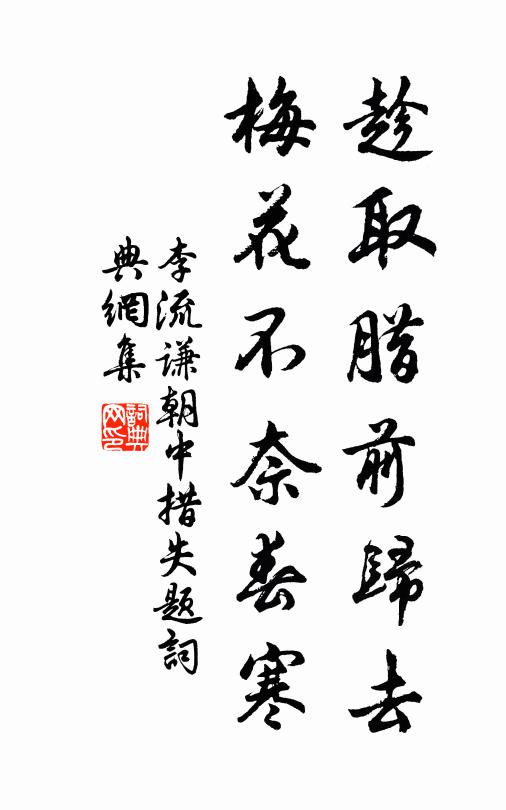 趁取腊前歸去
梅花不奈春寒
李流谦朝中措失题詞
典網集
詞典网印